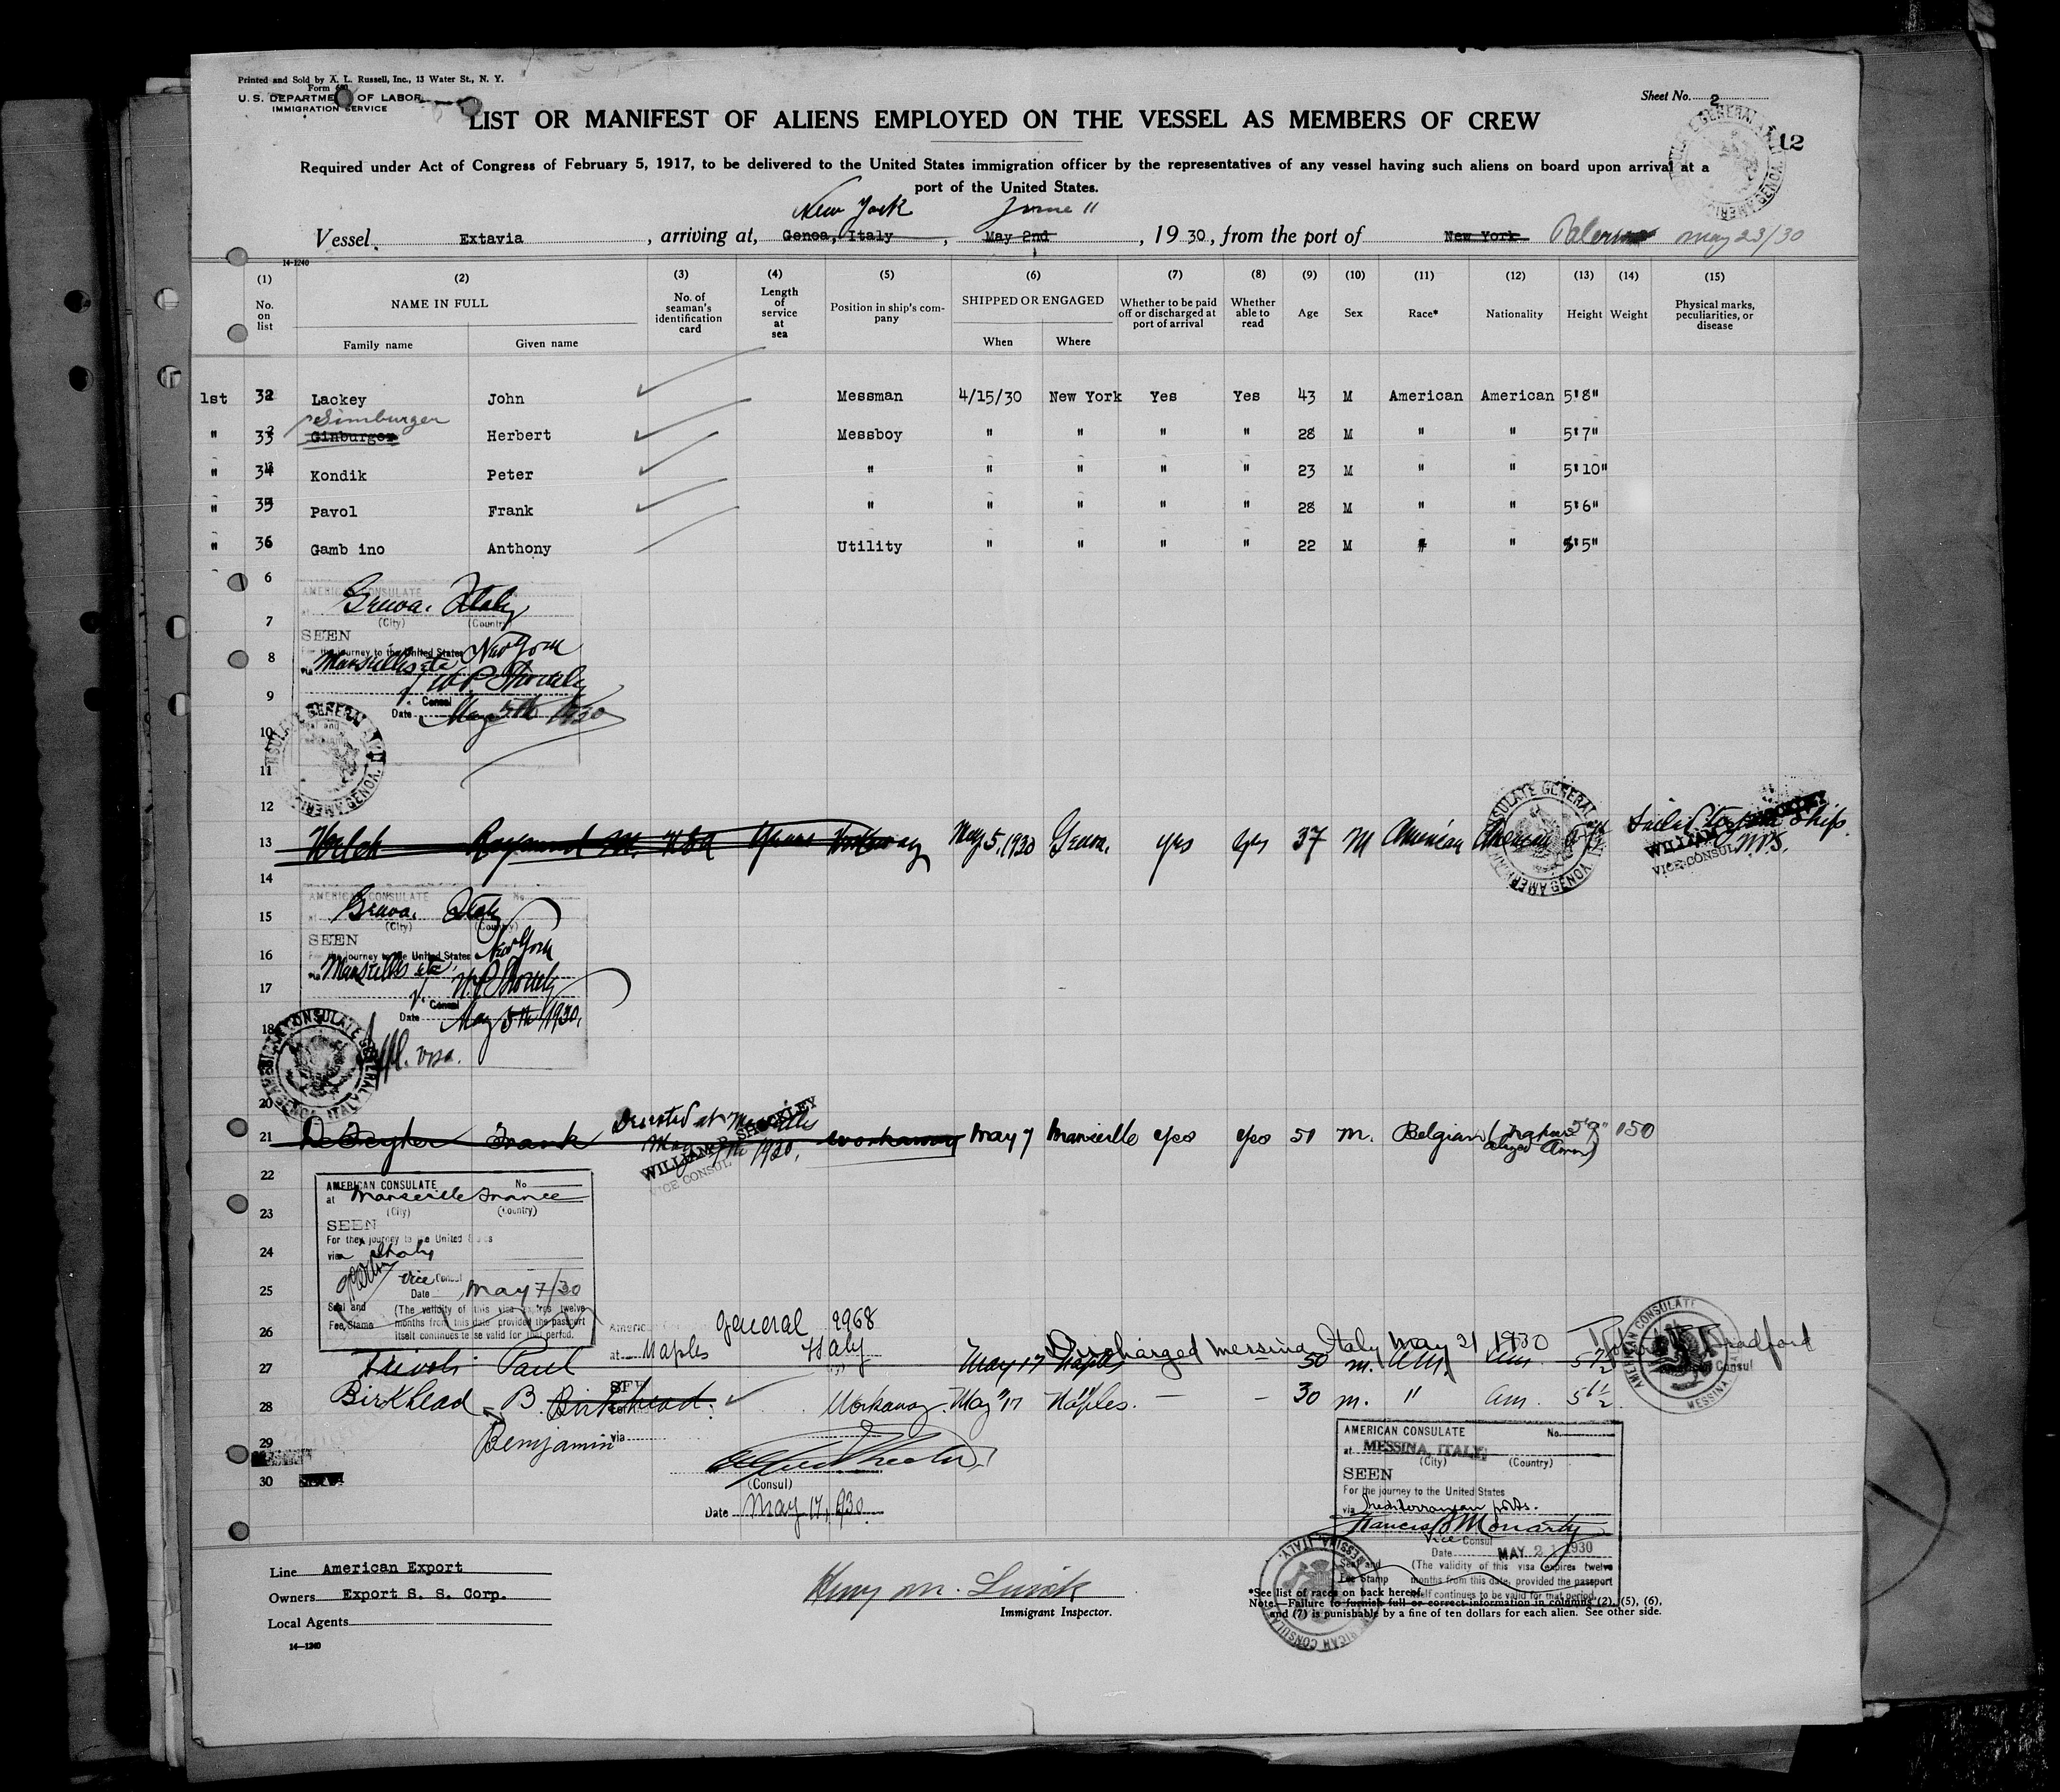 Printed and Sold by A. L. Russell, Inc., 13 Water St., N. Y.
Form
U. S. DEPARTMENT OF LABOR
IMMIGRATION SERVICE
Sheet No. 2
12
LIST OR MANIFEST OF ALIENS EMPLOYED ON THE VESSEL AS MEMBERS OF CREW
Required under Act of Congress of February 5, 1917, to be delivered to the United States immigration officer by the representatives of any vessel having such aliens on board upon arrival at a
port of the United States.
New York June 11
Vessel Extavia, arriving at, Genoa, Italy, May 2nd, 1930, from the port of New York Palermo May 23/30
14-1240
(1) (2) (3) (4) (5) (6) (7) (8) (9) (10) (11) (12) (13) (14) (15)
No. on list NAME IN FULL No. of seaman's identification card Length of service at sea Position in ship's company SHIPPED OR ENGAGED Whether to be paid off or discharged at port of arrival Whether able to read Age Sex Race* Nationality Height Weight Physical marks, peculiarities, or disease
Family name Given name When Where
1st 32 Lackey John Messman 4/15/30 New York Yes Yes 43 M American American 5'8"
Simburger
" 33 Ginburger Herbert Messboy " " " " 28 M " " 5'7"
" 34 Kondik Peter " " " " " 23 M " " 5'10"
" 35 Pavol Frank " " " " " 28 M " " 5'6"
" 36 Gamb ino Anthony Utility " " " " 22 M " " 5'5"
6
AMERICAN CONSULATE
Genoa. Italy
7 (City) (Country)
SEEN
8 For the journey to the United States New York
via Marseilles etc
9
Consul
Date May 5th 1930
10
11
12
13 Welch Raymond M. USA Workaway May 5, 1930 Genoa. yes yes 37 M American American Ship.
WILLIAM SHOCKLEY
VICE CONSUL
14
AMERICAN CONSULATE No
15 Genoa. Italy
(City) (Country)
SEEN
16 For the journey to the United States New York
via Marseilles etc.
17
Consul
Date May 5th 1930.
18
AMERICAN CONSULATE GENERAL GENOA, ITALY
20
Deserted at Marseilles
21 Frank May 7th 1930, workaway May 7 Marseille yes yes 51 m. Belgian 5'9" 150
WILLIAM P. SHOCKLEY
VICE CONSUL
22
AMERICAN CONSULATE No
at Marseille France
23 (City) (Country)
SEEN
24 For the journey to the United States
via Italy
Vice Consul
25 Date May 7/30
Seal and Fee Stamp (The validity of this visa expires twelve
months from this date provided the passport
itself continues to be valid for that period.
26 General 2968
at Naples Italy
Discharged Messina Italy May 21 1930
Bradford
Consul
27 Paul May 17 Naples 50 m. Am. Am. 5 7½
28 Birkhead B. Birkhead. Workaway May 17 Naples. – – 30 m. " Am. 5 6½
AMERICAN CONSULATE MESSINA
29 Benjamin via
30
(Consul)
Date May 17, 1930
AMERICAN CONSULATE No.
at MESSINA, ITALY
(City) (Country)
SEEN
For the journey to the United States
via Mediterranean ports.
Francis B Moriarty
Vice Consul
Date MAY 21 1930
Seal and Fee Stamp (The validity of this visa expires twelve
months from this date, provided the passport
itself continues to be valid for that period.
Line American Export
Owners Export S. S. Corp.
Local Agents
14—1240
Immigrant Inspector.
*See list of races on back hereof.
Note—Failure to furnish full or correct information in columns (2), (5), (6),
and (7) is punishable by a fine of ten dollars for each alien. See other side.